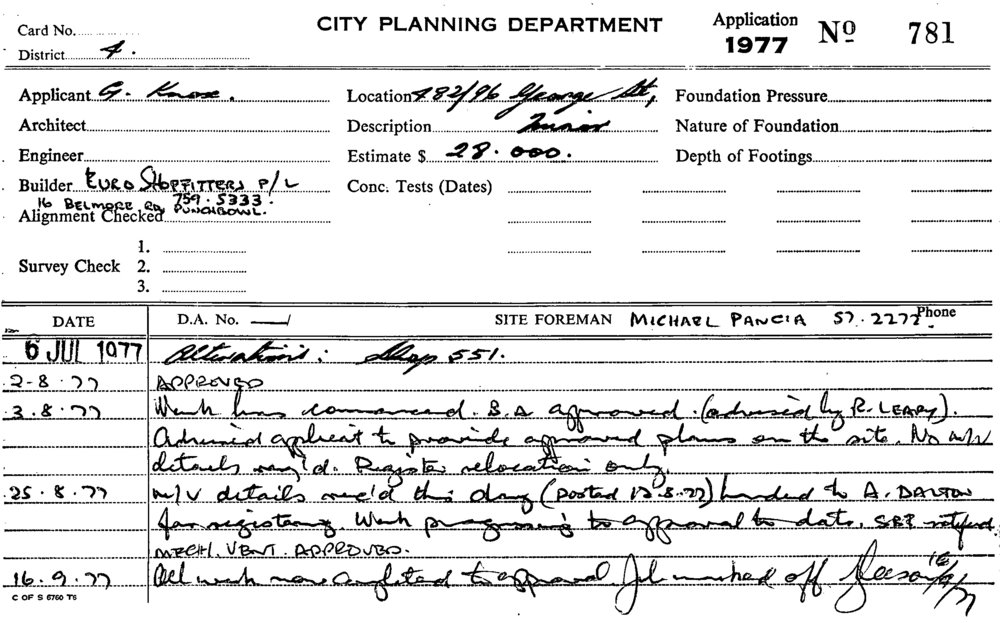 Card No.
CITY PLANNING DEPARTMENT
Application 1977 Nº 781
District 4.
Applicant G. Knox. Location 482/96 George St, Foundation Pressure
Architect Description Minor Nature of Foundation
Engineer Estimate $ 28.000. Depth of Footings
Builder EURO SHOPFITTERS P/L Conc. Tests (Dates)
16 BELMORE RD 759.5333.
Alignment Checked PUNCHBOWL.
1.
Survey Check 2.
3.
DATE D.A. No. SITE FOREMAN MICHAEL PANCIA 57.2272. Phone
6 JUL 1977 Alterations: Shop 551.
2-8.77 APPROVED
3.8.77 Work has commenced. B.A approved. (advised by R. LEARY).
Advised applicant to provide approved plans on the site. No m/v
details req'd. Register relocation only.
25.8.77 m/v details rec'd this day (posted 12.8.77) handed to A. DALTON
for registering. Work progressing to approval to date. notified
MECH. VENT. APPROVED.
16.9.77 All work now completed to approval. Job marked off 16/9/77
C OF S 6760 T6